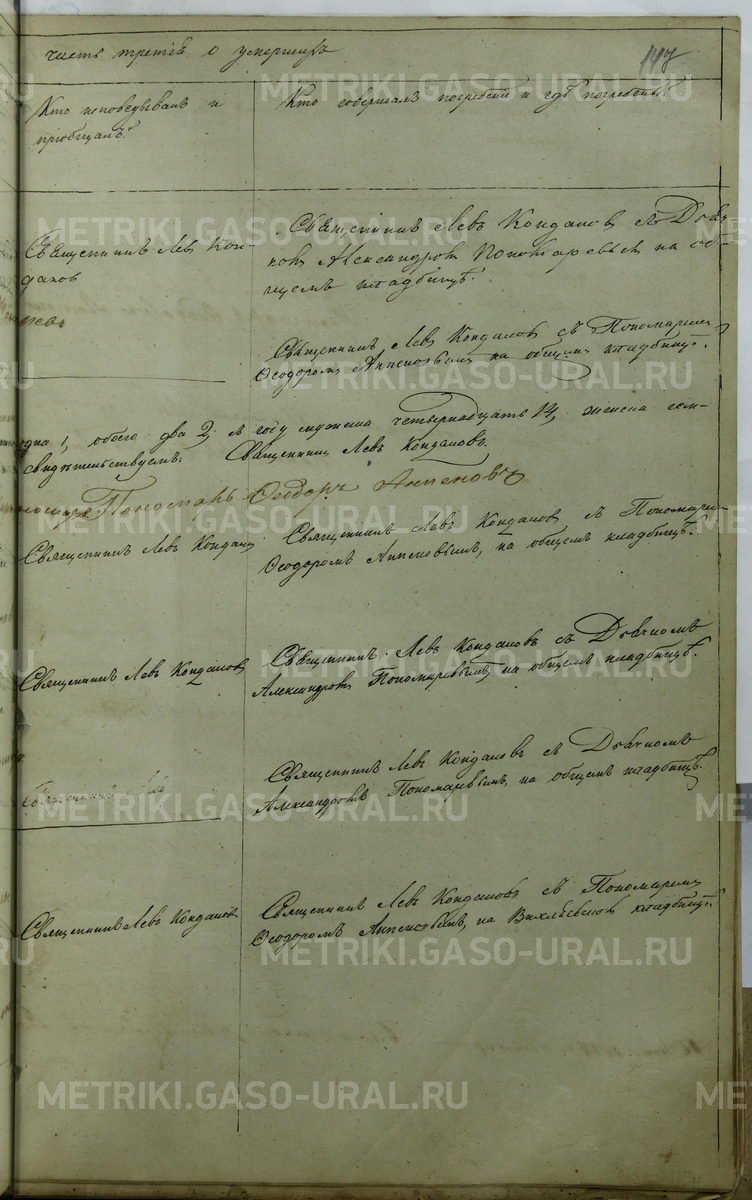 часть третiя о умершихъ
147
Кто исповедывалъ и
прiобщалъ.
Кто совершалъ погребенiе и гдѣ погребены.
Священникъ Левъ Кон-
даковъ
Священникъ Левъ Кондаковъ съ Дьяч-
комъ Александромъ Пономаревымъ на об-
щемъ кладбищѣ.
Священникъ Левъ Кондаковъ съ Пономаремъ
Ѳеодоромъ на общемъ кладбищѣ.
одна 1, обоего два 2, въ году мужеска четырнадцать 14, женска сем-
свидѣтельствуемъ: Священникъ Левъ Кондаковъ.
Пономарь Ѳеодоръ
Священникъ Левъ Кондаковъ
Священникъ Левъ Кондаковъ съ Пономаремъ
Ѳеодоромъ на общемъ кладбищѣ.
Священникъ Левъ Кондаковъ
Священникъ Левъ Кондаковъ съ Дьячкомъ
Александромъ Пономаревымъ, на общемъ кладбищѣ.
Священникъ Левъ Кондаковъ съ Дьячкомъ
Александромъ Пономаревымъ, на общемъ кладбищѣ.
Священникъ Левъ
Священникъ Левъ Кондаковъ
Священникъ Левъ Кондаковъ съ Пономаремъ
Ѳеодоромъ на кладбищѣ
METRIKI.GASO-URAL.RU
METRIKI.GASO-URAL.RU
METRIKI.GASO-URAL.RU
METRIKI.GASO-URAL.RU
METRIKI.GASO-URAL.RU
METRIKI.GASO-URAL.RU
METRIKI.GASO-URAL.RU
METRIKI.GASO-URAL.RU